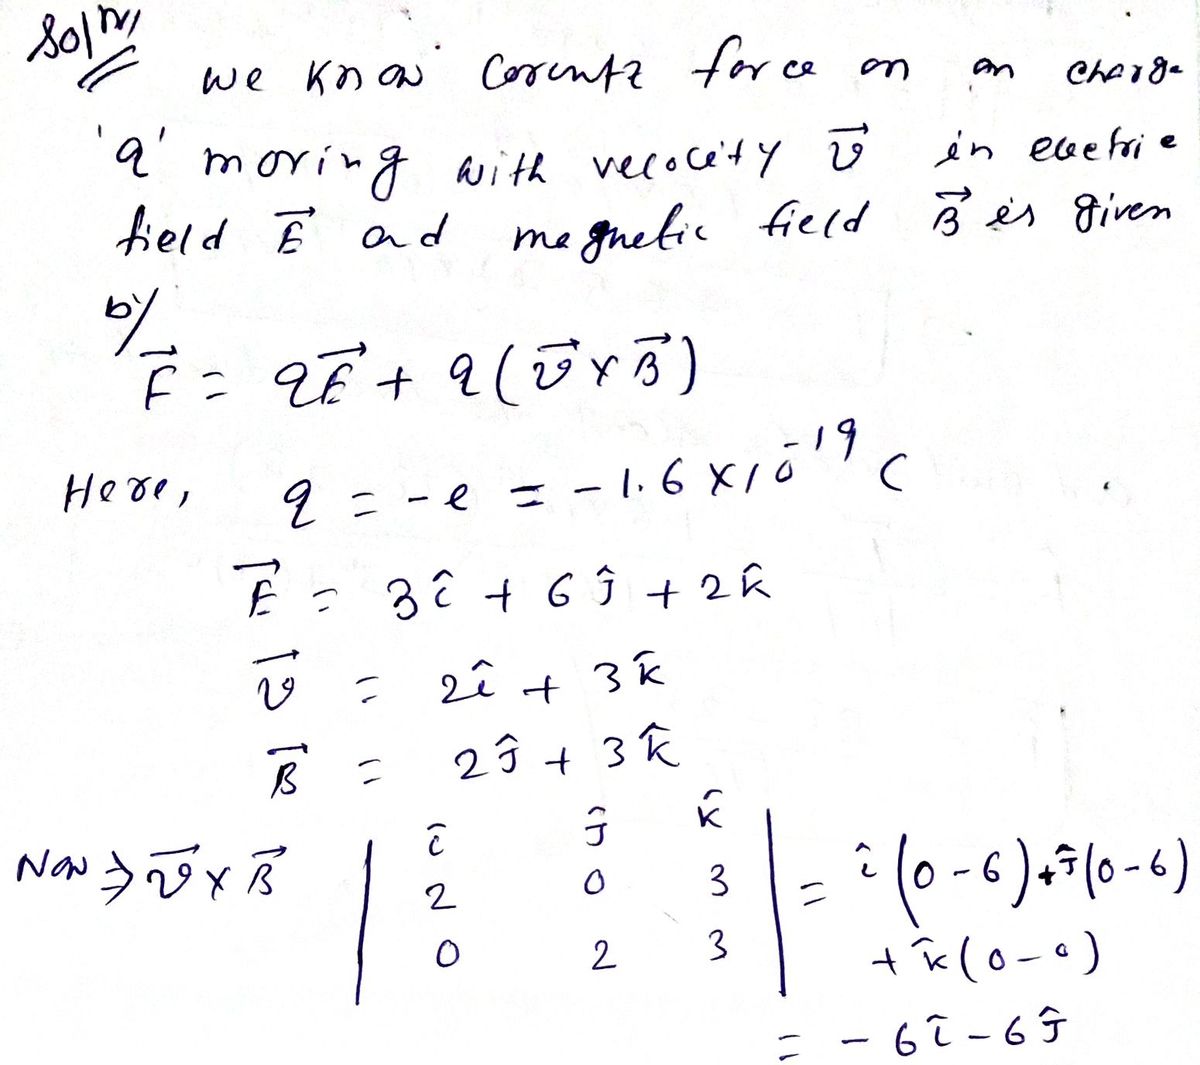 Solⁿ/
We Know Lorentz force on an charge
'q' moving with velocity v⃗ in electric
field E⃗ and magnetic field B⃗ is given
by
F⃗ = qE⃗ + q(v⃗ × B⃗)
Here, q = -e = -1.6 × 10⁻¹⁹ C
E⃗ = 3î + 6ĵ + 2k̂
v⃗ = 2î + 3k̂
B⃗ = 2ĵ + 3k̂
Now ⇒ v⃗ × B⃗ | î ĵ k̂ | = î(0-6) + ĵ(0-6)
2 0 3
0 2 3 + k̂(0-0)
= -6î - 6ĵ